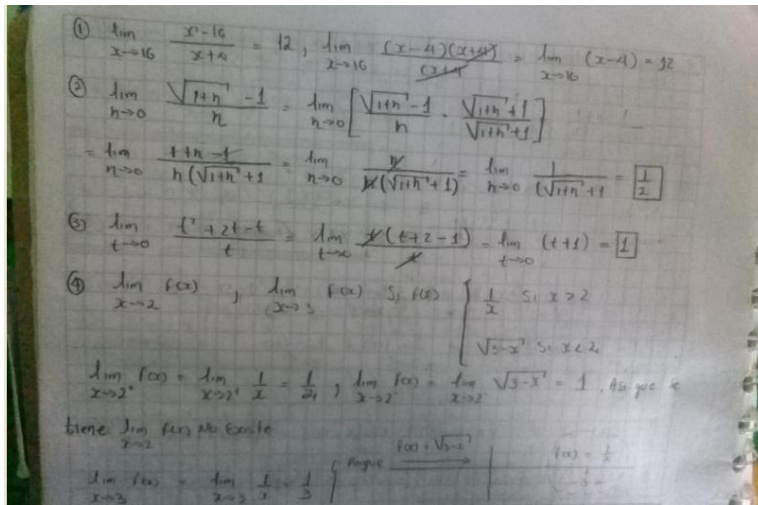 ① lim x→16 x²-16 / x+4 = 12, lim x→16 (x-4)(x+4) / (x+4) = lim x→16 (x-4) = 12
② lim h→0 √1+h - 1 / h = lim h→0 [ √1+h - 1 / h · √1+h + 1 / √1+h + 1 ]
= lim h→0 1+h-1 / h(√1+h + 1 = lim h→0 h / h(√1+h + 1) = lim h→0 1 / (√1+h + 1 = 1/2
③ lim t→0 t² + 2t - t / t = lim t→0 t(t+2-1) / t = lim t→0 (t+1) = 1
④ lim x→2 f(x) , lim x→3 f(x) Si f(x) { 1/x Si x>2
√3-x Si x<2
lim x→2⁺ f(x) = lim x→2⁺ 1/x = 1/2, lim x→2⁻ f(x) = lim x→2⁻ √3-x = 1. Asi que se
tiene lim x→2 f(x) No Existe
lim x→3 f(x) = lim x→3 1/x = 1/3 { Porque f(x) = √3-x f(x) = 1/x